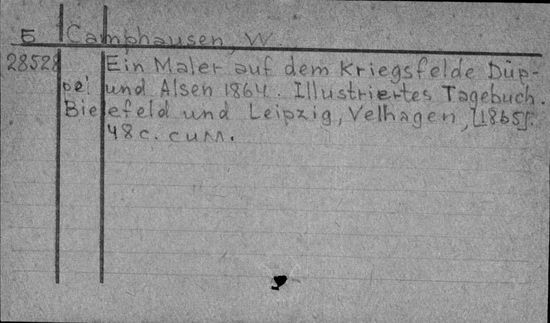 5 Camphausen, W.
28528 Ein Maler auf dem Kriegsfelde Düp-
pel und Alsen 1864. Illustriertes Tagebuch.
Bielefeld und Leipzig, Velhagen, [1865].
48 с. с илл.